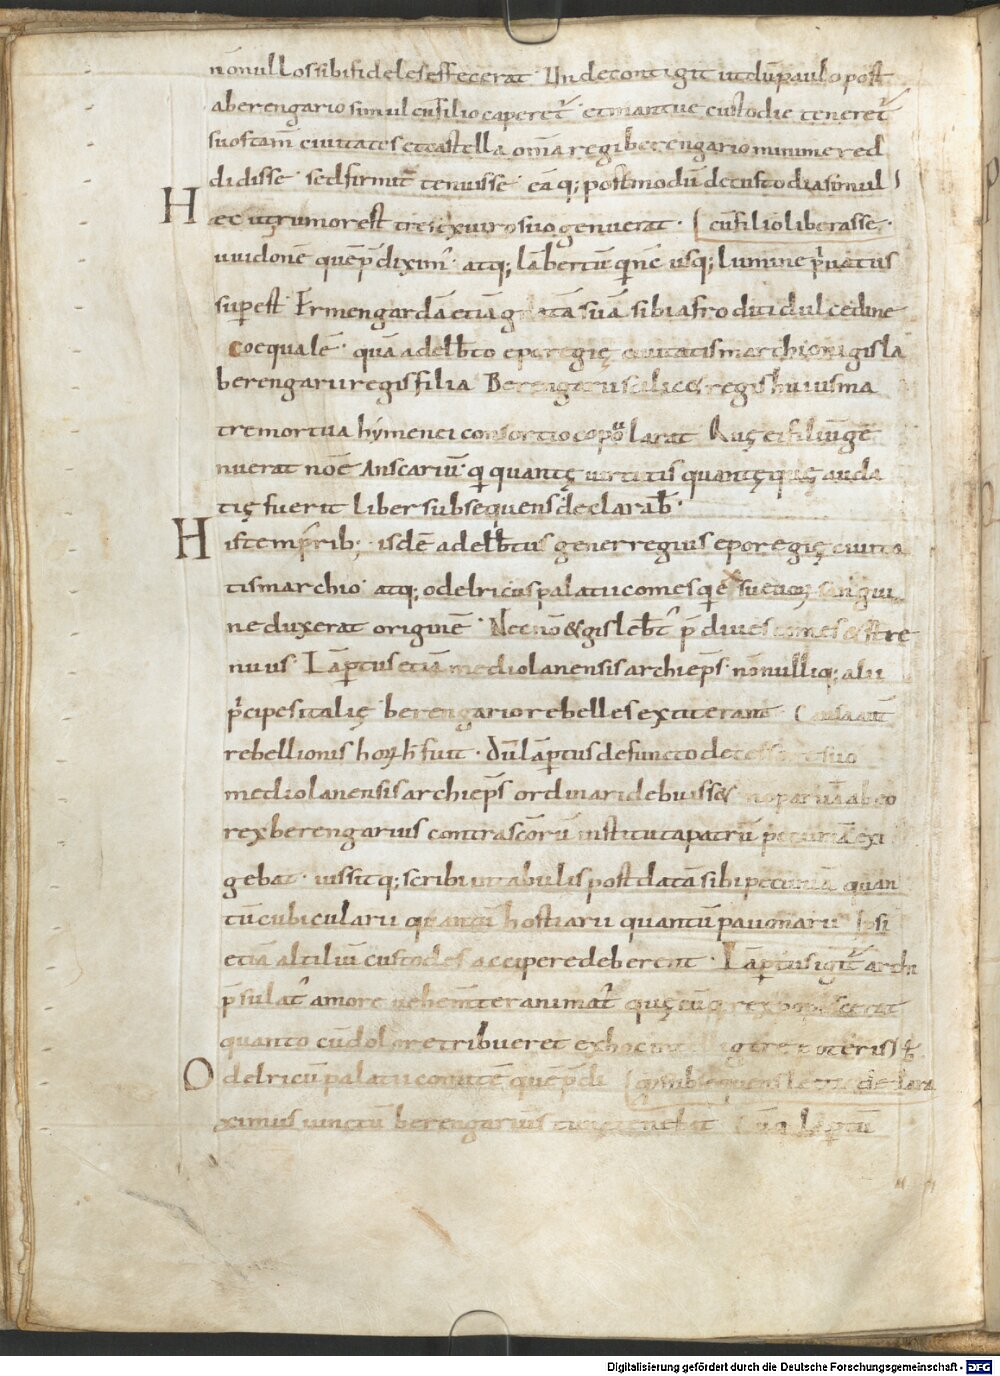 nōnullos sibi fideles effecerat · Unde contigit ut dū paulo post
a berengario simul cū filio caperet᷑ · et mantue custodie teneret᷑
suos tam̄ ciuitates et castella om̄ia regi berengario minime red
didisse · sed firmit̄ tenuisse · eāq; postmodū de custodia simul
Hec ut rumor est tres ex uiro suo genuerat · cū filio liberasse ·
uuidonē quē p̄diximꝰ · atq; lābertū q̄ nc̄ usq; lumine pͥuatus
suꝑest · Ermengardā etiā gnatā suā sibi afroditi dulcedine
coequalē · quā adelb̄to eporegię ciuitatis marchioni gisla
berengarii regis filia · Berengarii scilicet regis huius ma
tre mortua hymenei consortio copulārat · Quę ei filiū ge
nuerat nōe Anscariū · q quantę uirtutis quantęque auda
tię fuerit liber subsequens declarab̄ ·
His temp̄rib; · isdē adelb̄tus gener regius eporegię ciuita
tis marchio · atq; odelricus palatii comes q̄ e sueuoꝝ sangui
ne duxerat originē · Necnō & gislebt̄ᷓ p̄diues comes & stre
nuus · Lāꝑtus etiā mediolanensis archiep̄s · nōnulliq; alii
pͥcipes italię · berengario rebelles extiterant · Causa aut̄
rebellionis hoꝝ h̄ fuit · dū lāꝑtus defuncto decessore suo
mediolanensis archiep̄s ordinari debuisset no paruā ab eo
rex berengarius contra sc̄orū instituta patrū pecuniā exi
gebat · iussitq; scribi in tabulis post datā sibi pecuniā quan
tū cubicularii quantū hostiarii quantū pauonarii ipsi
etiā altiliū custodes accipere deberent · Lāꝑtus igit᷑ archi
p̄sulat᷑ amore uehem̄ter animat᷑ quęcūq rex poposcerat
quanto cū dolore tribueret ex hoc intelligere poteris
Odelricū palatii comitē quē p̄di qd̄ subsequens lectio declara
ximus uinctū berengarius tunc tenebat Eūq lāꝑtū